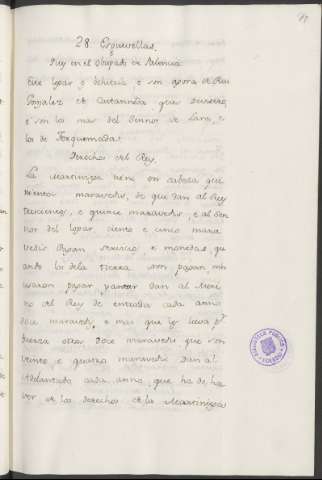 17
28. Esguevillas.
Diz en el obispado de Palencia.
Este logar es behetria, e son agora de Rui
Gonzalez de Castanneda que Disieron,
e son los mas del Sennor de Lara, e
los de Torquemada.
Derechos del Rey.
La Martiniega tiene en cabeza qui
nientos maravedis, de que dan al Rey
trecientos, e quince maravedis, e al Sen
nor del logar, ciento e cinco mara
vedis Pagan servicio e monedas, qu
ando los dela tierra son pagan, nin
pagar dan al Meri
no del Rey de entrada cada anno
doce maravedis, e mas que lo lieva por
fuerza otros doce maravedis que son
veinte, e quatro maravedis dan al
Adelantado cada anno, que ha de ha
ver de los derechos de la Martiniega
BIBLIOTECA PUBLICA
TOLEDO